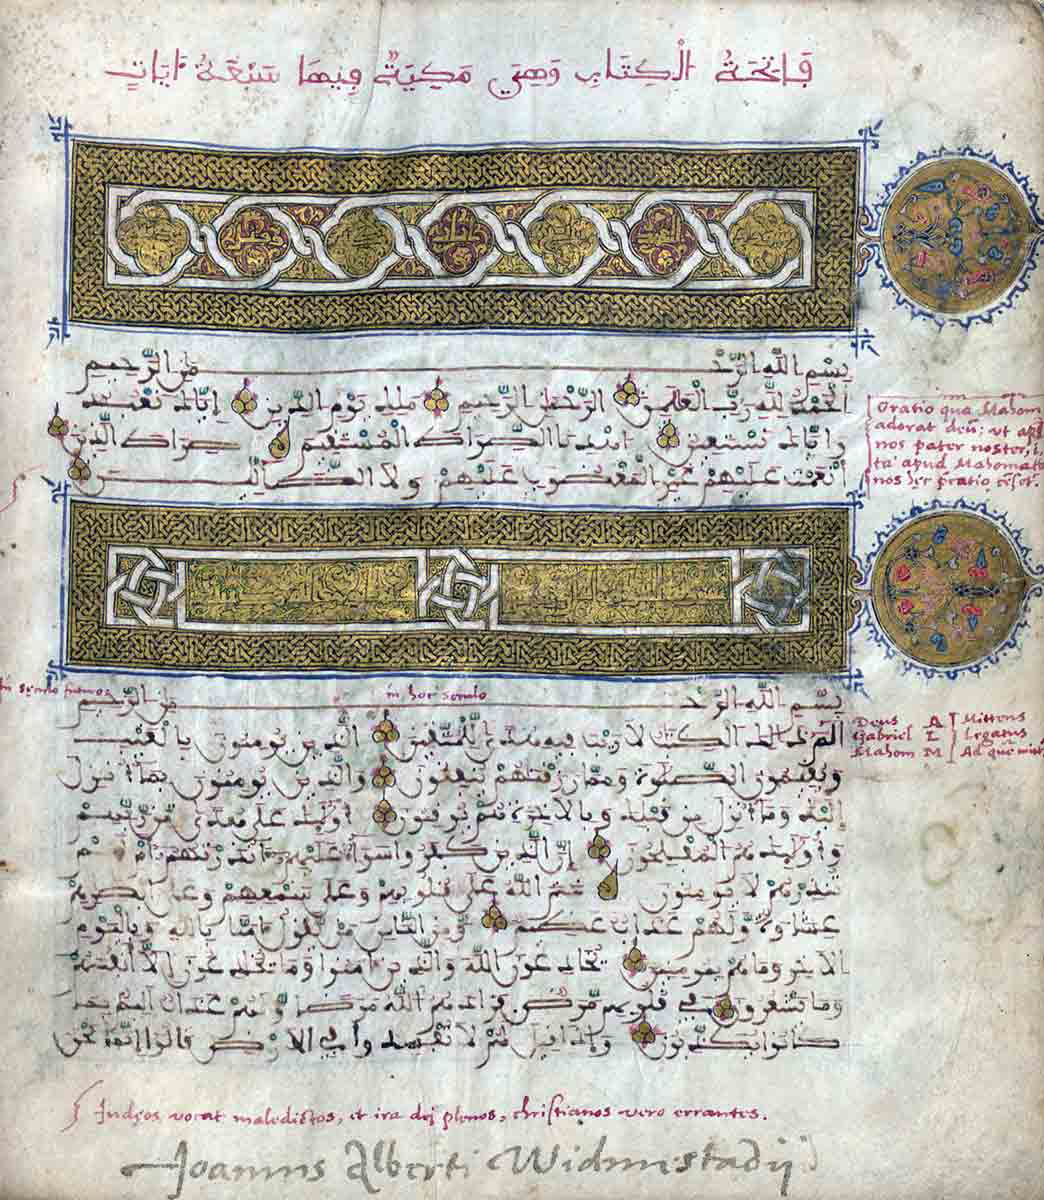 فَاتِحَةُ الْكِتَابِ وَهِيَ مَكِّيَّةٌ فِيهَا سَبْعُ آيَاتٍ
بِسْمِ اللَّهِ الرَّحْمَٰنِ الرَّحِيمِ
الْحَمْدُ لِلَّهِ رَبِّ الْعَٰلَمِينَ الرَّحْمَٰنِ الرَّحِيمِ مَلِكِ يَوْمِ الدِّينِ إِيَّاكَ نَعْبُدُ
وَإِيَّاكَ نَسْتَعِينُ اهْدِنَا الصِّرَاطَ الْمُسْتَقِيمَ صِرَاطَ الَّذِينَ
أَنْعَمْتَ عَلَيْهِمْ غَيْرِ الْمَغْضُوبِ عَلَيْهِمْ وَلَا الضَّالِّينَ
Oratio qua Mahom
adorat deũ, ut apd
nos pater noster, i
ta apud Mahometa
nos hec oratio
In seculo futuro
in hoc seculo
بِسْمِ اللَّهِ الرَّحْمَٰنِ الرَّحِيمِ
الٓمٓ ذَٰلِكَ الْكِتَٰبُ لَا رَيْبَ فِيهِ هُدًى لِلْمُتَّقِينَ الَّذِينَ يُومِنُونَ بِالْغَيْبِ
وَيُقِيمُونَ الصَّلَوٰةَ وَمِمَّا رَزَقْنَٰهُمْ يُنْفِقُونَ وَالَّذِينَ يُومِنُونَ بِمَا أُنْزِلَ
إِلَيْكَ وَمَا أُنْزِلَ مِنْ قَبْلِكَ وَبِالْآخِرَةِ هُمْ يُوقِنُونَ أُولَٰئِكَ عَلَىٰ هُدًى مِنْ رَبِّهِمْ
وَأُولَٰئِكَ هُمُ الْمُفْلِحُونَ إِنَّ الَّذِينَ كَفَرُوا سَوَآءٌ عَلَيْهِمْ ءَأَنْذَرْتَهُمْ أَمْ لَمْ
تُنْذِرْهُمْ لَا يُومِنُونَ خَتَمَ اللَّهُ عَلَىٰ قُلُوبِهِمْ وَعَلَىٰ سَمْعِهِمْ وَعَلَىٰ أَبْصَٰرِهِمْ
غِشَٰوَةٌ وَلَهُمْ عَذَابٌ عَظِيمٌ وَمِنَ النَّاسِ مَنْ يَقُولُ ءَامَنَّا بِاللَّهِ وَبِالْيَوْمِ
الْآخِرِ وَمَا هُمْ بِمُومِنِينَ يُخَٰدِعُونَ اللَّهَ وَالَّذِينَ ءَامَنُوا وَمَا يُخَٰدِعُونَ إِلَّا أَنْفُسَهُمْ
وَمَا يَشْعُرُونَ فِي قُلُوبِهِمْ مَرَضٌ فَزَادَهُمُ اللَّهُ مَرَضًا وَلَهُمْ عَذَابٌ أَلِيمٌ بِمَا
كَانُوا يُكَذِّبُونَ وَإِذَا قِيلَ لَهُمْ لَا تُفْسِدُوا فِي الْأَرْضِ قَالُوا إِنَّمَا نَحْنُ
Deus A Mittens
Gabriel L Legatus
Mahom M Ad quẽ
Judęos vocat maledictos, et ira dej plenos, christianos vero errantes.
Joannis Alberti Widmestadij